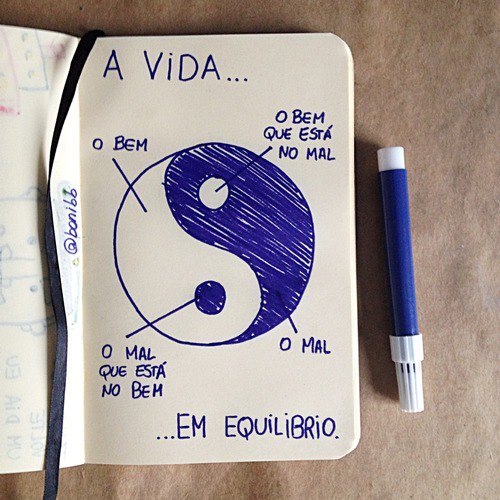 A VIDA...
O BEM
O BEM
QUE ESTÁ
NO MAL
@bonibb
O MAL
QUE ESTÁ
NO BEM
O MAL
...EM EQUILIBRIO.
UM DIA EU